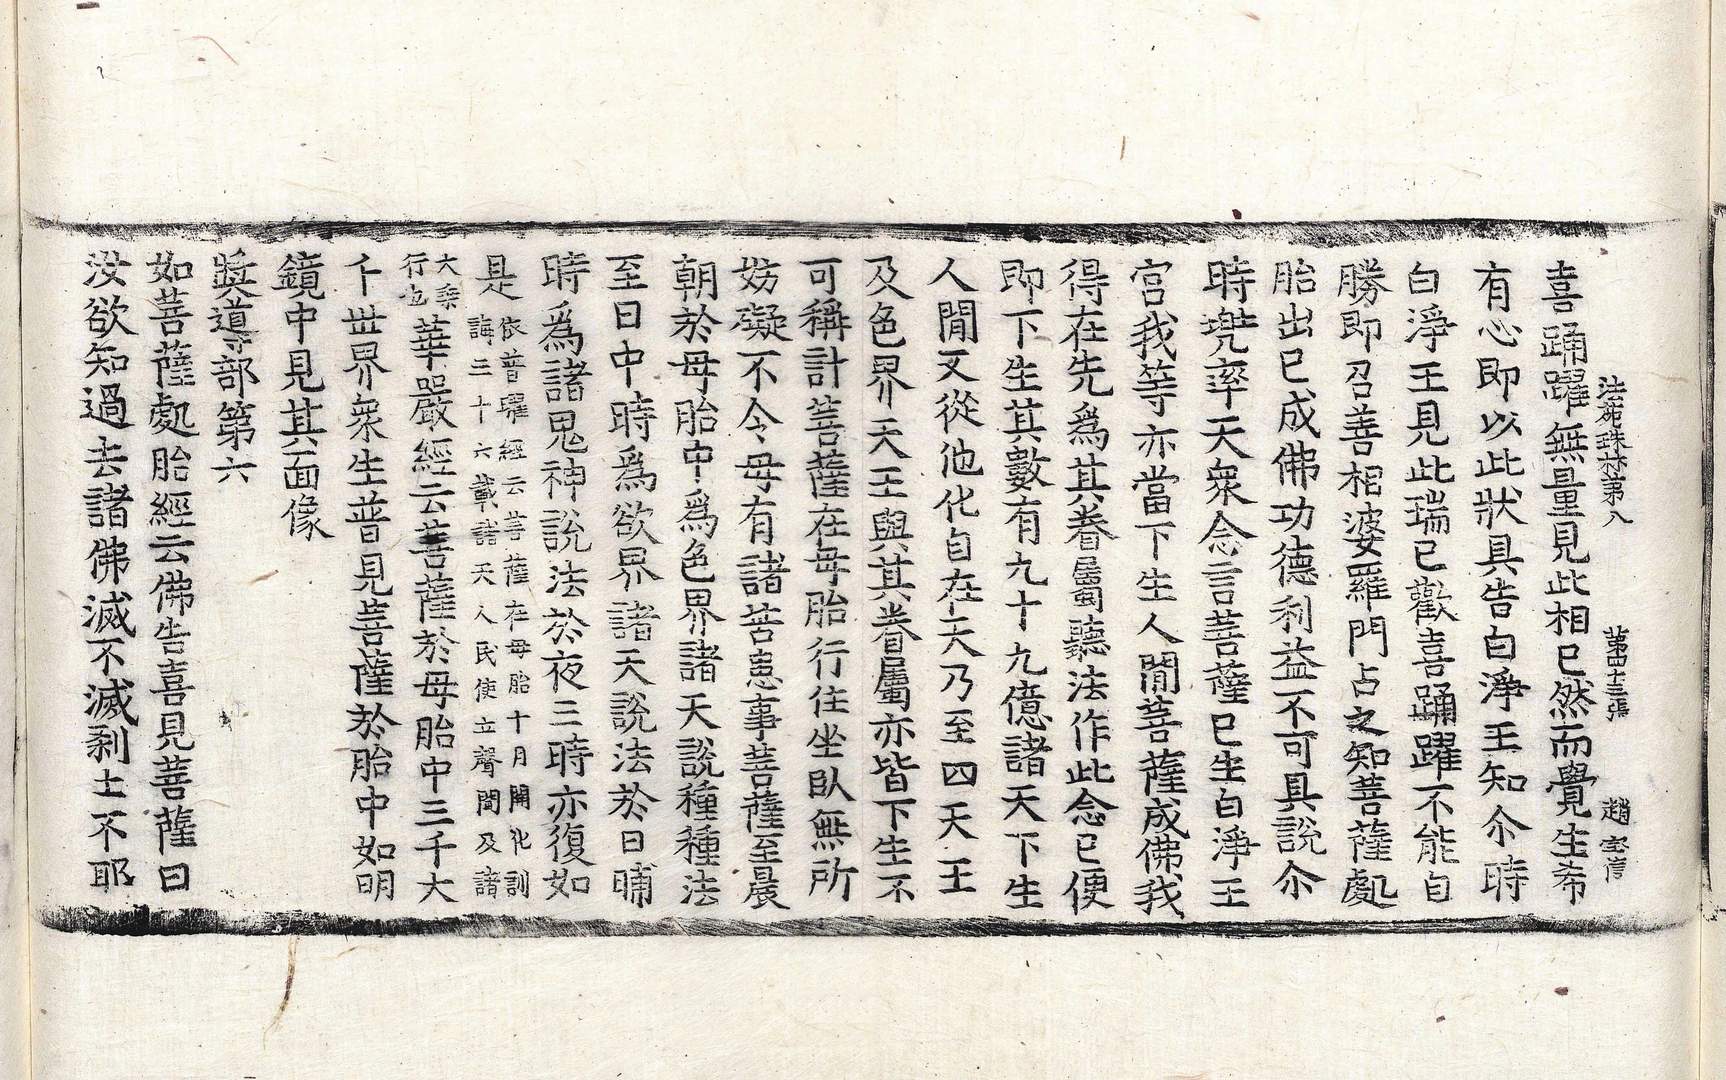 法苑珠林第八　第四十三張　趙
喜踊躍無量見此相已然而覺生希
有心即以此狀具告白淨王知尒時
白淨王見此瑞已歡喜踊躍不能自
勝即召善相婆羅門占之知菩薩處
胎出已成佛功德利益不可具說尒
時兠率天衆念言菩薩已生白淨王
宮我等亦當下生人閒菩薩成佛我
得在先爲其眷屬聽法作此念已便
即下生其數有九十九億諸天下生
人閒又從他化自在天乃至四天王
及色界天王與其眷屬亦皆下生不
可稱計菩薩在母胎行住坐臥無所
妨礙不令母有諸苦患事菩薩至晨
朝於母胎中爲色界諸天說種種法
至日中時爲欲界諸天說法於日晡
時爲諸鬼神說法於夜三時亦復如
是依普曜經云菩薩在母胎十月開化訓
誨三十六載諸天人民使立聲聞及諸
大乘
行也華嚴經云菩薩於母胎中三千大
千世界衆生普見菩薩於胎中如明
鏡中見其面像
奬導部第六
如菩薩處胎經云佛告喜見菩薩曰
汝欲知過去諸佛滅不滅刹土不耶